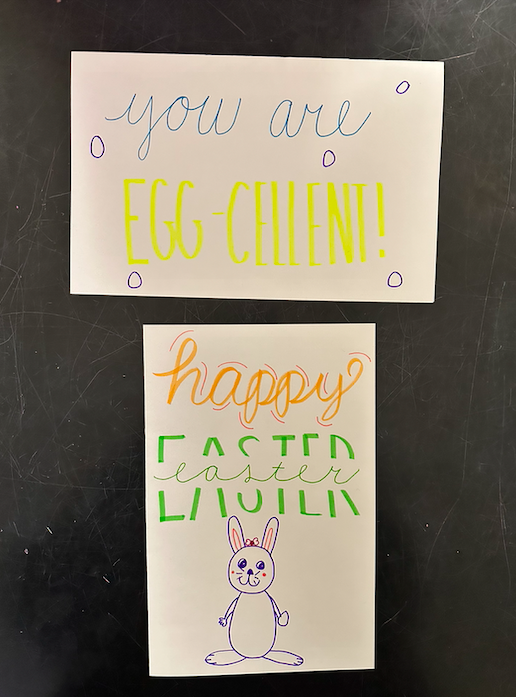 you are
EGG-CELLENT!
happy
EASTER
easter